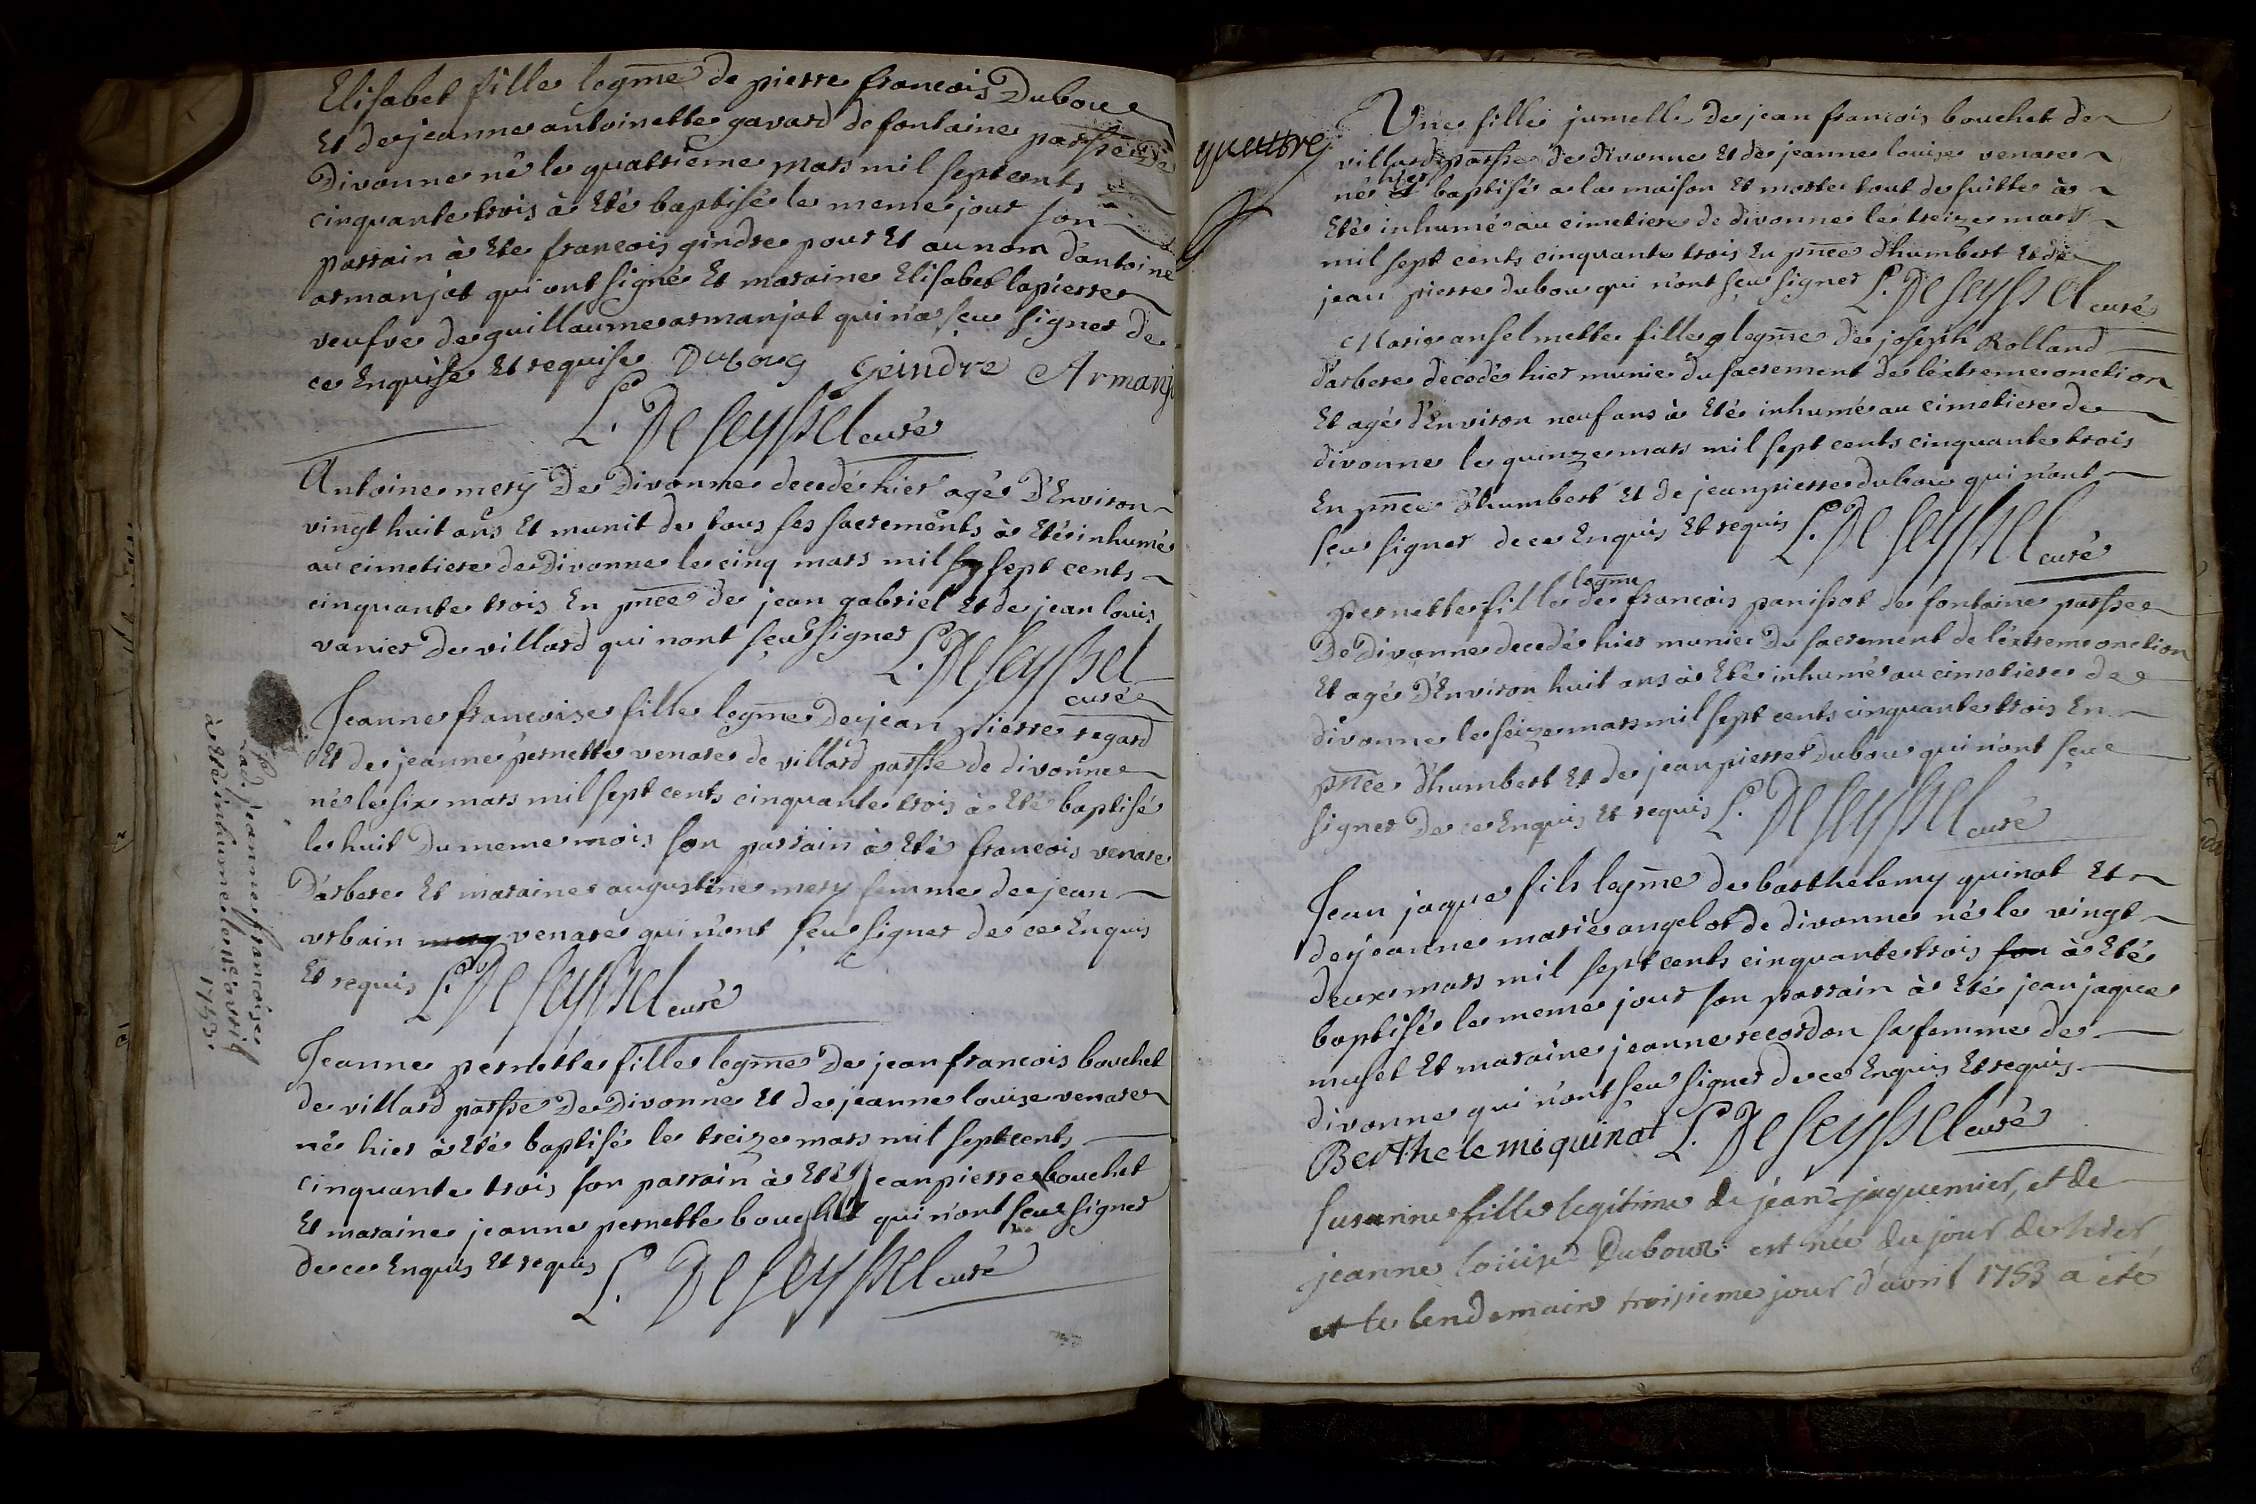 Elisabet fille legme de pierre francois Duboue
Et de jeanne antoinette gavard de fontaine parsse de
Divonne né le quatrieme mars mil sept cents
cinquante trois à Eté baptisé le meme jour son
parrain à Ete francois gindre pour Et au nom dantoine
armanjat qui ont signé Et maraine Elisabet lapierre
veufve de guillaume armanjat qui n'a sçeu signer de
ce Enquise Et requise Duboug geindre Armanj
L. De Seyssel curé
Antoine mery De Divonne decedé hier agé D'Environ
vingt huit ans Et munit de tous ses sacrements à Eté inhumé
au cimetiere de Divonne le cinq mars mil sept cents
cinquante trois En pnce de jean gabriel Et de jean louis
vanier de villard qui nont sçeu signer L. De Seyssel
curé
Jeanne francoise fille legme De jean pierre regard
Et de jeanne pernette venare de villard parsse de divonne
né le six mars mil sept cents cinquante trois à Eté baptisé
le huit Du meme mois son parrain à Eté francois venare
D'arbere Et maraine augustine mery femme de jean
urbain mery venare qui n'ont sçeu signer de ce Enquis
Et requis L. De Seyssel curé
Jeanne pernette fille legme De jean francois bouchet
de villard parsse De Divonne Et de jeanne louize venare
né hier à Eté baptisé le treize mars mil sept cents
cinquante trois son parrain à Eté Jean pierre bouchet
Et maraine jeanne pernette bouchet qui n'ont sçeu signer
de ce Enquis Et requis L. De Seyssel curé
Lad. jeanne francoise
à Eté inhumé le avril
1753.
quattre
Une fille jumelle de jean francois bouchet de
villard parsse de divonne Et de jeanne louize venare
né hier Et baptisé a la maison Et morte tout de suitte à
Eté inhumé au cimetiere de divonne le treize mars
mil sept cents cinquante trois En pnce d'humbert Et de
jean pierre dubou qui n'ont sçeu signer L. De Seyssel curé
Marie anselmette fille legme de joseph Rolland
d'arbere decedé hier munie du sacrement de l'éxtreme onction
Et agé d'Environ neuf ans à Eté inhumé au cimetiere de
divonne le quinze mars mil sept cents cinquante trois
En pnce D'humbert Et de jean pierre dubou qui n'ont
sçeu signer de ce Enquis Et requis L. De Seyssel curé
pernette fille legme de francois panissot de fontaine parsse
De Divonne decedé hier munie Du sacrement de l'éxtreme onction
Et agé D'Environ huit ans à Eté inhumé au cimetiere de
divonne le seize mars mil sept cents cinquante trois En
pnce d'humbert Et de jean pierre dubou qui n'ont sçeu
signer De ce Enquis Et requis L. De Seyssel curé
Jean jaque fils legme de barthelemy quinat Et
de jeanne marie angelot de divonne né le vingt
deux mars mil sept cents cinquante trois son à Eté
baptisé le meme jour son parrain à Eté jean jaque
muset Et maraine jeanne recordon sa femme de
divonne qui n'ont sçeu signer de ce Enquis Et requis
Berthelemi quinat L. De Seyssel curé
Susanne fille legitime de jean jaquemier, et de
jeanne loüise Dubour est née du jour de hier
et le lendemain troisieme jour d'avril 1753 a été